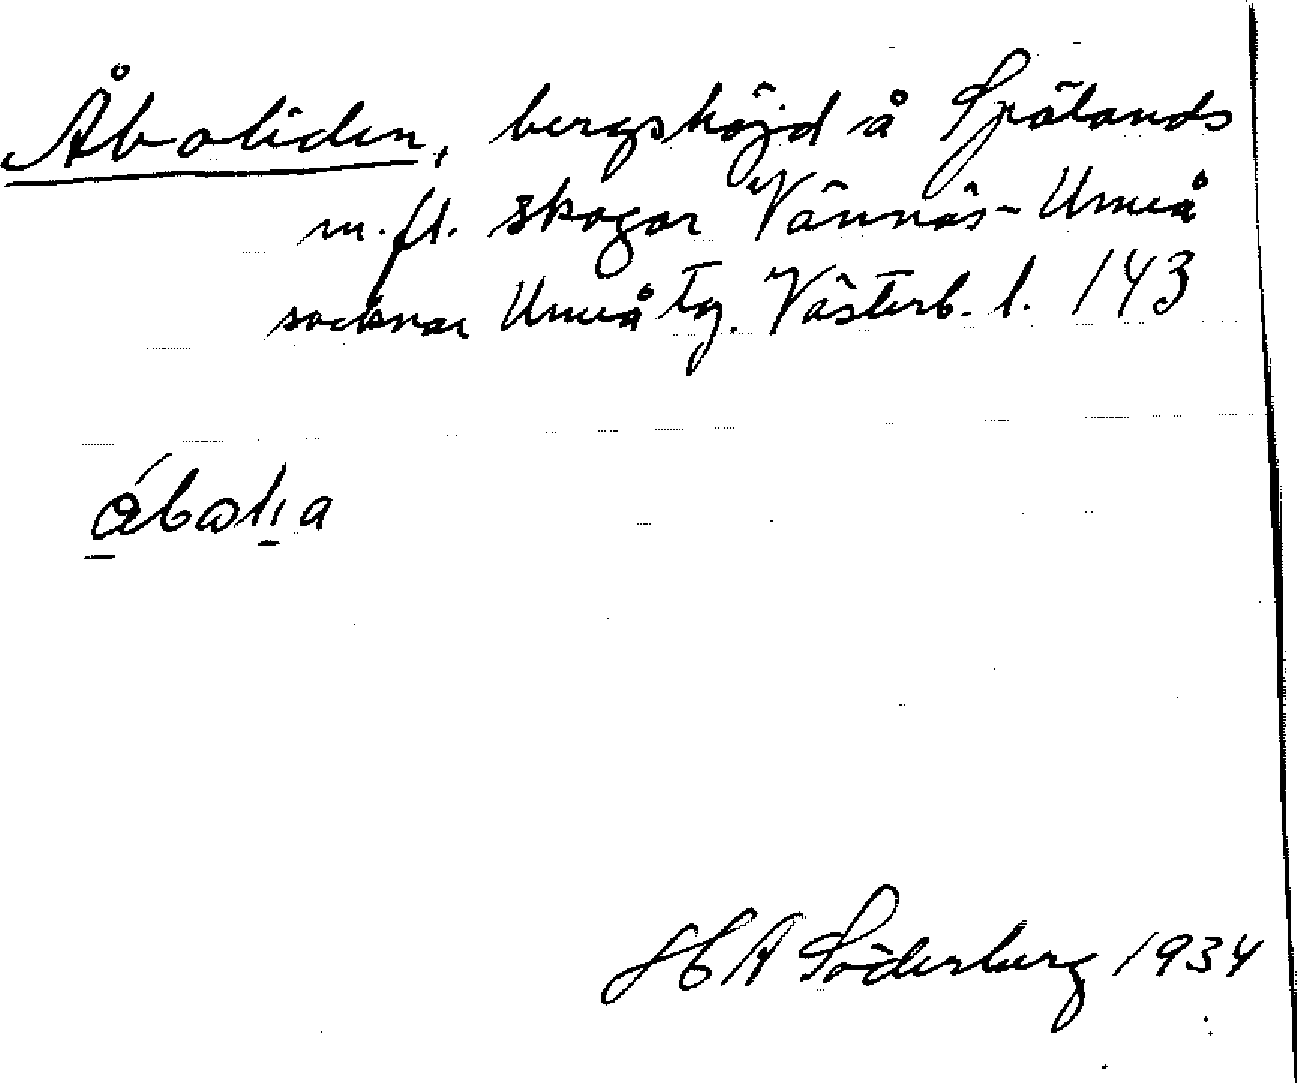 Åboliden, bergshöjd å Spölands
m.fl. skogar Vännäs- Umeå
socknar Umeå tg. Västerb. l. 143
H A Söderberg 1934